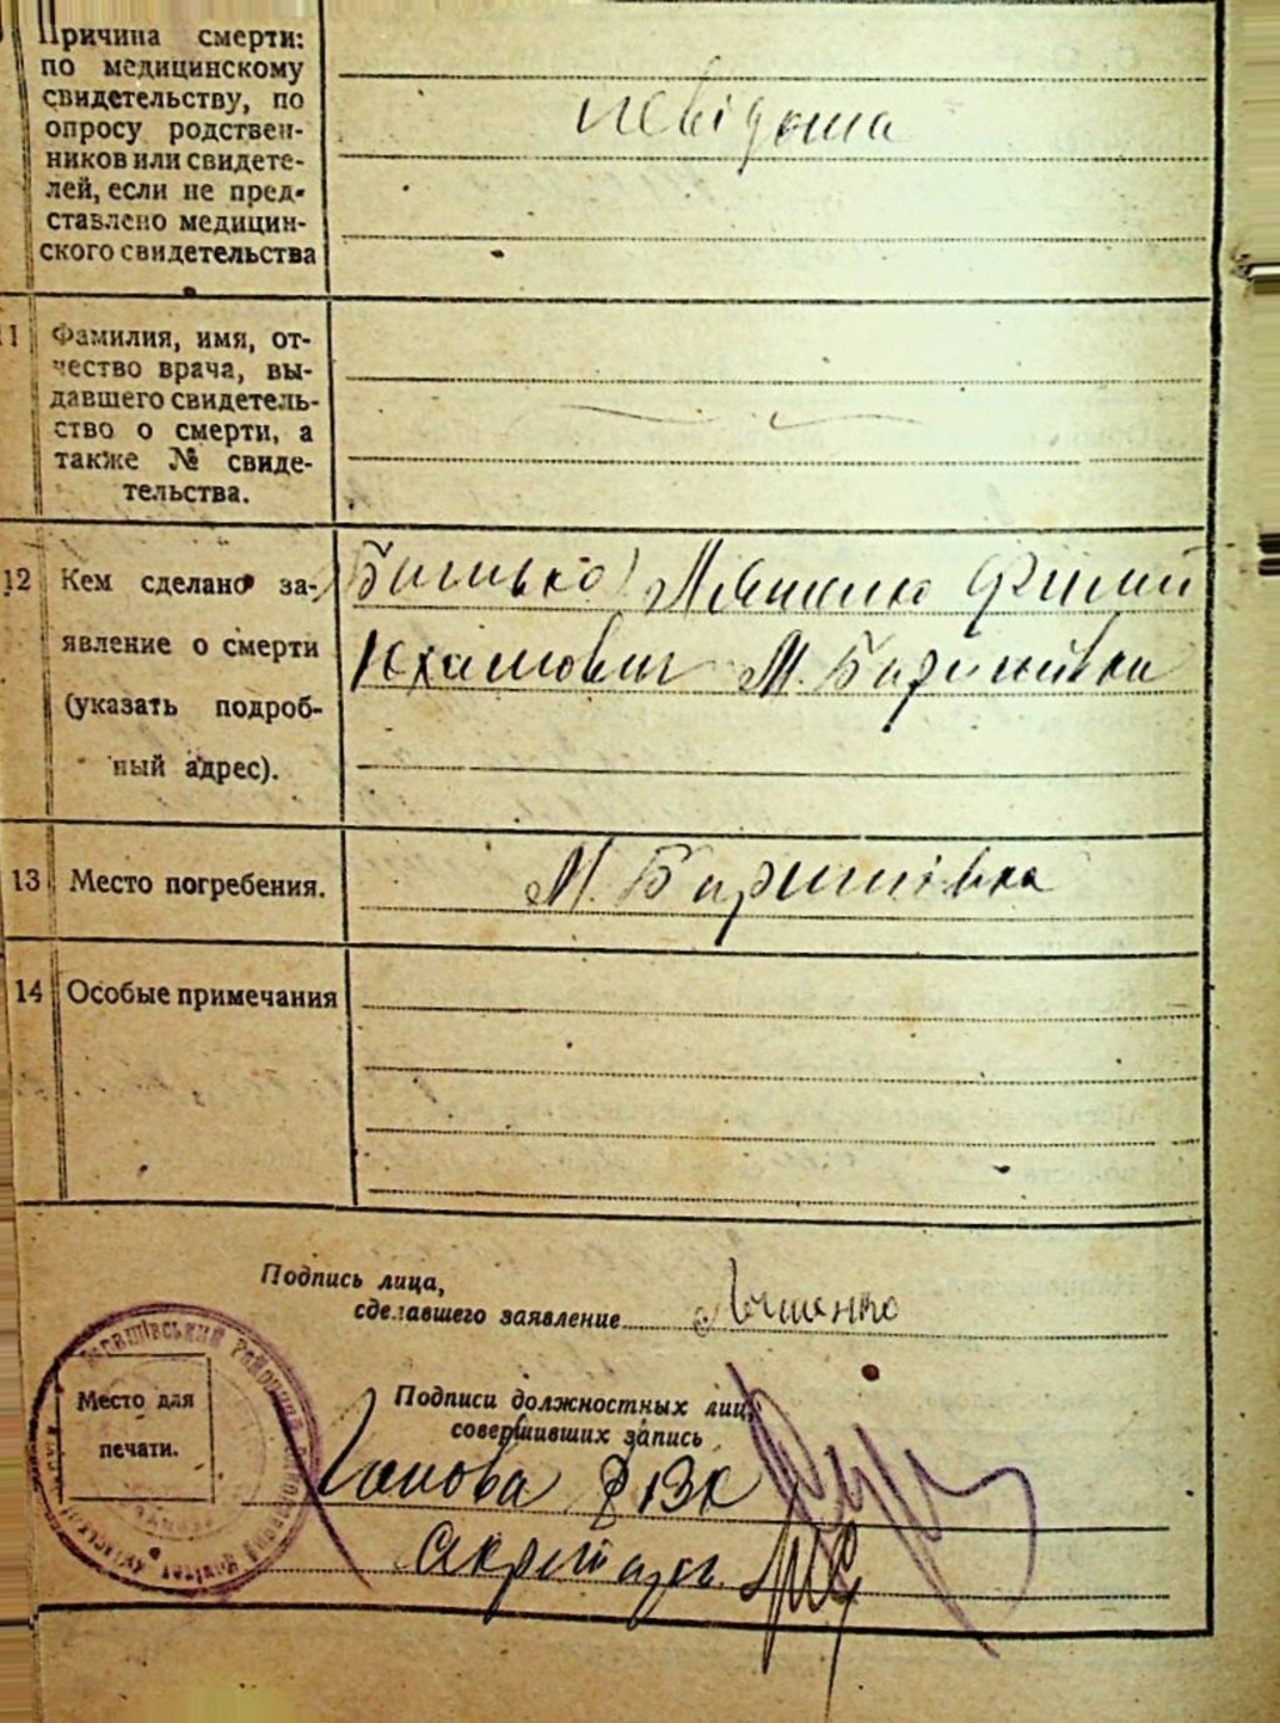 Причина смерти:
по медицинскому
свидетельству, по
опросу родствен-
ников или свидете-
лей, если не пред-
ставлено медицин-
ского свидетельства
невідома
11 Фамилия, имя, от-
чество врача, вы-
давшего свидетель-
ство о смерти, а
также № свиде-
тельства.
12 Кем сделано за-
явление о смерти
(указать подроб-
ный адрес).
Батько
М. Баришівка
13 Место погребения.
М. Баришівка
14 Особые примечания
Подпись лица,
сделавшего заявление
Ляшенко
Место для
печати.
Подписи должностных лиц,
совершивших запись
Голова
Секретарь